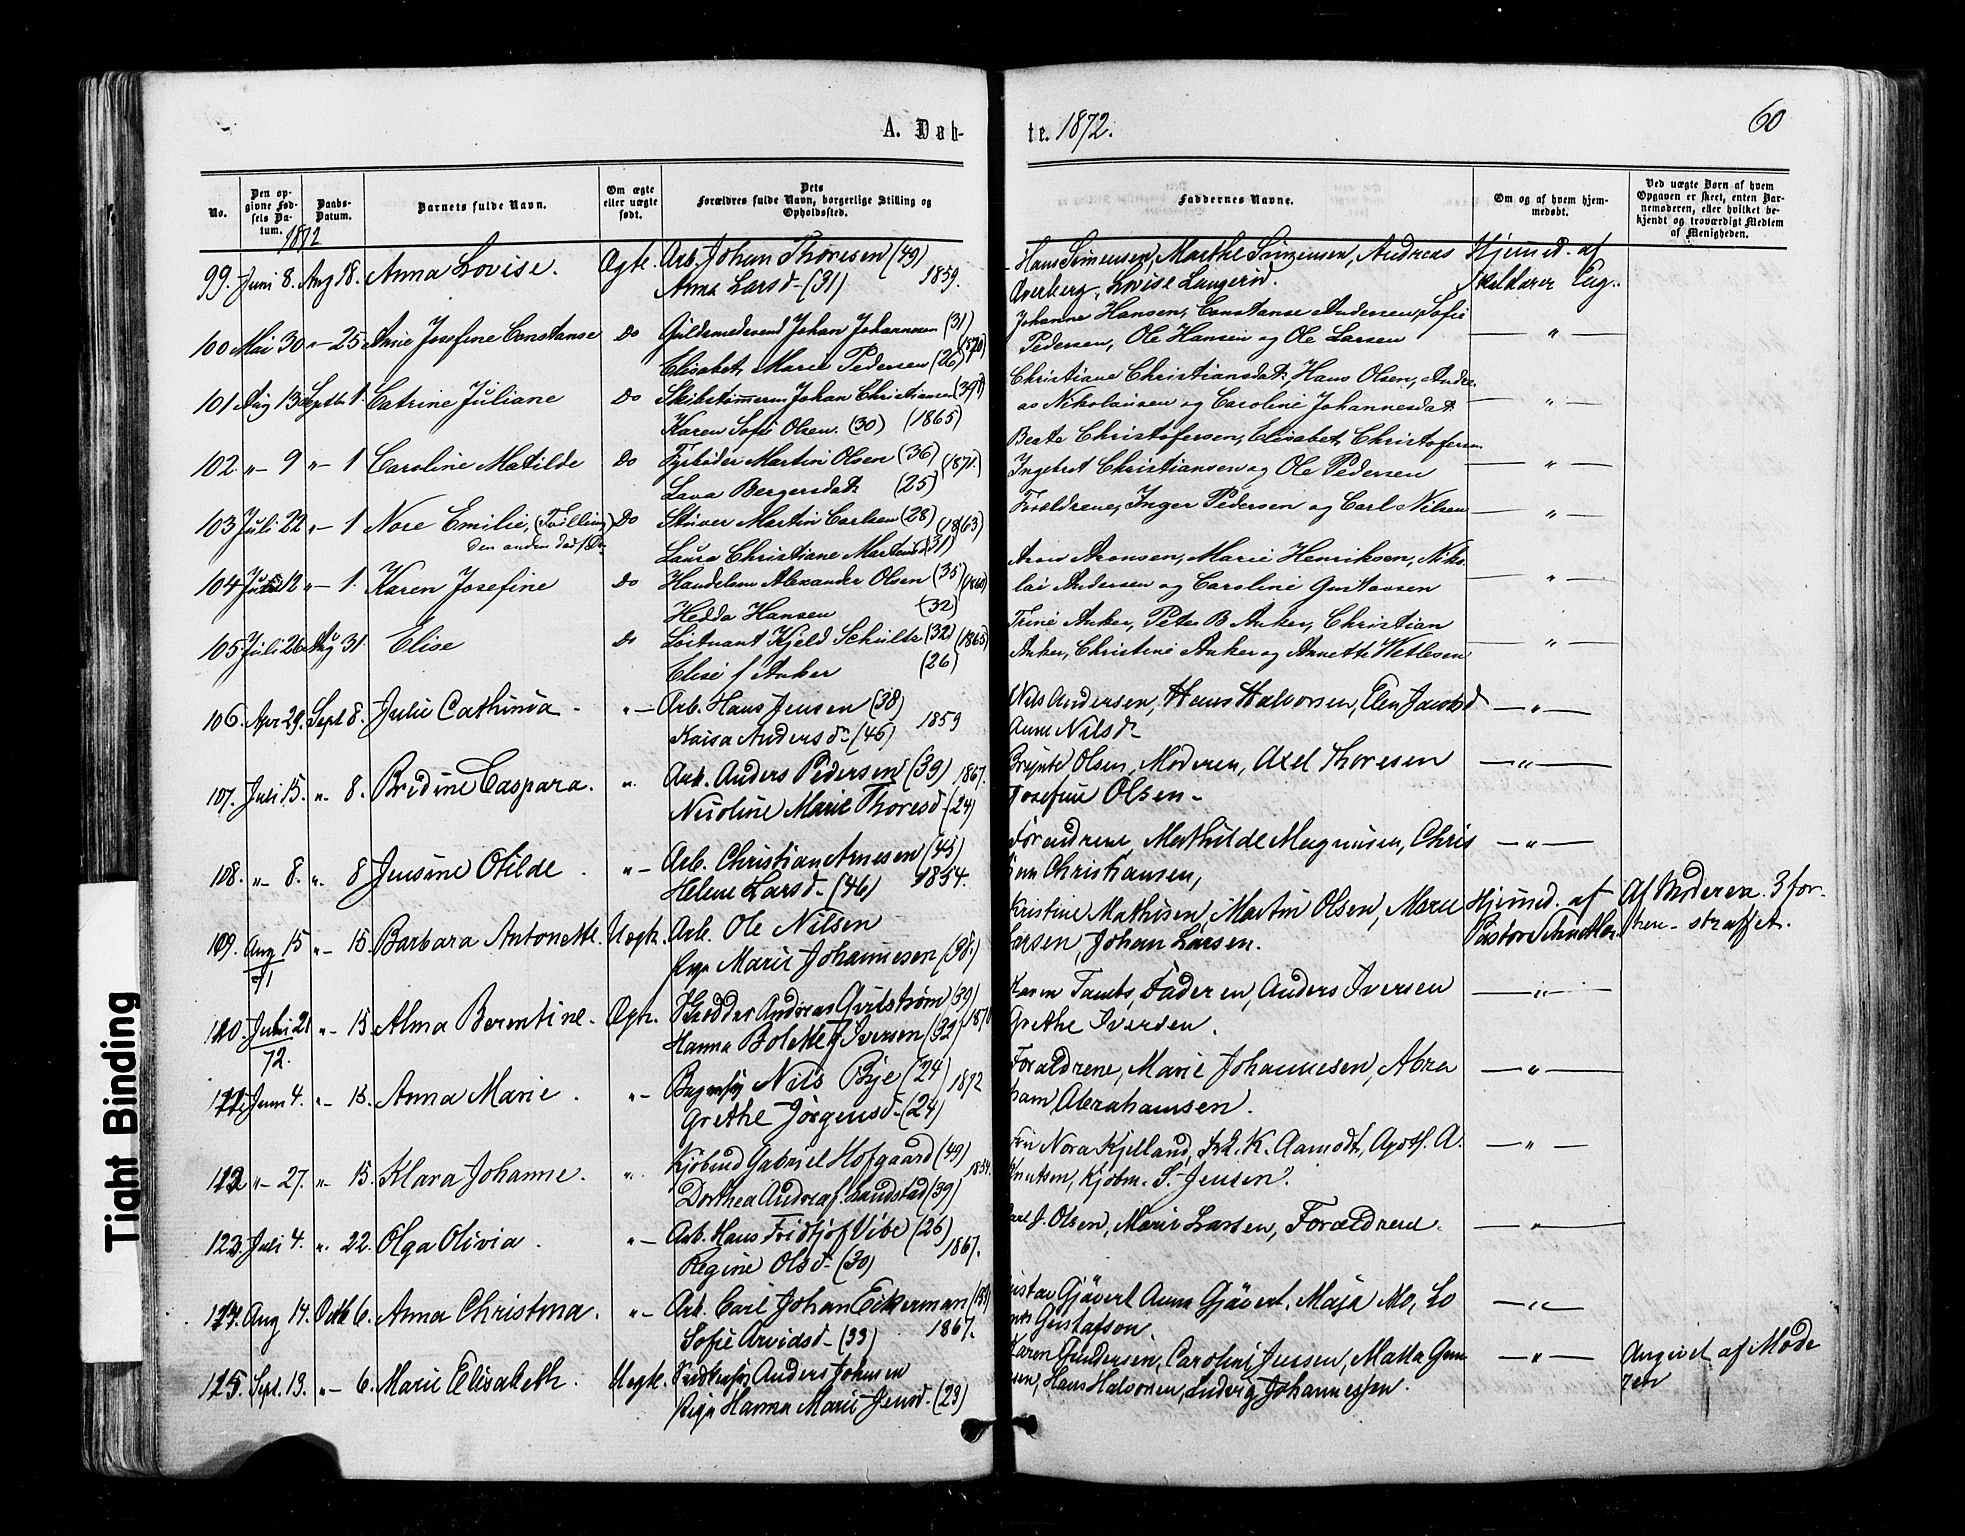 A. Døb-
te. 1872.
60
No.
Den op-
givne Fød-
sels Da-
tum.
Daabs-
Datum.
Barnets fulde Navn.
Om ægte
eller uægte
født.
Dets
Forældres fulde Navn, borgerlige Stilling og
Opholdssted.
Faddernes Navne.
Om og af hvem hjem-
medøbt.
Ved uægte Børn af hvem
Opgaven er skeet, enten Bar-
nemoderen, eller hvilket be-
kjendt og troværdigt Medlem
af Menigheden.
1872
99. Juni 8. Aug 18. Anna Lovise. Ægte. Arb. Johan Thoresen (49) Hans Simensen, Marthe Simensen, Andreas Hjemmed. af
Anna Larsd- (31) 1859. Overberg, Lovise Langerud. Eug.
100 Mai 30 "- 25 Anne Josefine Constanse Do Guldsmedsvend Johan Johannesen (31) Johanne Hansen, Constanse Andersen, Sofie
Elisabet Marie Pedersen (26) (1870) Pedersen, Ole Hansen og Ole Larsen — " —
101 Aug 13 Septbr 1 Catrine Juliane Do Skibstømmerm Johan Christiansen (39) Christiane Christiansdat, Hans Olsen, Andre-
Karen Sofie Olsen. (30) (1865) as Nikolaisen og Caroline Johannesdat — " —
102 "- 9 "- 1 Caroline Matilde Do Fyrbøder Martin Olsen (36) (1871.) Berte Christofersen, Elisabet Christofersen
Lava Bergersdat (25) Ingebret Christiansen og Ole Pedersen — " —
103 Juli 22 "- 1 Nore Emilie, (Tvilling) Do Skriver Martin Carlsen (28) (1863) Forældrene, Inger Pedersen og Carl Nilsen — " —
den anden død f. D. Laura Christiane Martinsd (31)
104 Juli 12 "- 1. Karen Josefine Do Handelsm Alexander Olsen (35) (1860) Aron Aronsen, Marie Henriksen, Niko-
Hedda Hansen (32) lai Andersen og Caroline Gustavsen — " —
105 Juli 26 Aug 31. Elise Do Løitnant Kjeld Schultz (32) (1865) Trine Anker, Peter B Anker, Christian
Elise f Anker (26) Anker, Christine Anker og Annette Wetlesen — " —
106. Apr 29. Sept 8. Julie Cathinca - "- Arb. Hans Jensen (38) Nils Andersen, Hans Halvorsen, Elen Jacobsd — " —
Kaisa Andersd- (46) 1859 Anne Nilsd-
107. Juli 15. " 8. Bredine Caspara. " Arb. Anders Pedersen (39) 1867. Olsen, Moderen, Axel Thoresen — " —
Nicoline Marie Thoresd- (24) Josefine Olsen-
108. "- 8. " 8 Jensine Otilde . "- Arb. Christian Arnesen (45) Forældrene, Mathilde Magnusen, Chris — " —
Helene Larsd- (46) 1854. Christiansen,
109. Aug 15 "- 15. Barbara Antonette. Uægte. Arb. Ole Nilsen Kristine Mathisen, Martin Olsen, Marie Hjemmed. af Af Moderen. 3 for-
71 Pige Marie Johannesen (38.) Larsen, Johan Larsen. Pastor hen- straffet.
120. Juni 21 "- 15. Alma Berentine. Ægte. Andreas (39) Tambs, Faderen, Anders Iversen — " —
72. Hanna Bolette f Iversen (32) 1871 Grethe Iversen.
121. Juni 4. "- 15. Anna Marie . "- Nils Bye (24) 1872 Forældrene, Marie Johannesen, Abra — " —
Grethe Jørgensd- (24) ham Abrahamsen.
122 "- 27. "- 15. Klara Johanne. " Kjøbmd Gabriel Hofgaard (49) 1854. Fru Nora Kjelland, Frk. K. Aamodt, Apoth. A. — " —
Dorthea Andrea f. Landstad (39) Knutsen, Kjøbm. S. Jensen.
123. Juli 4. " 22. Olga Olivia . "- Arb. Hans Fridtjof Vibe (26) J. Olsen, Marie Larsen, Forældrene. — " —
Regine Olsd- (30) 1867.
124. Aug 14. Octb 6. Anna Christina. "- Arb. Carl Johan Eckerman Gjävert Anna Gjävert, Maja Mo, Lo — " —
Sofie Arvidsd- (33) 1867. Gustafson.
125. Sept. 13. "- 6. Marie Elisabeth. Uægte. Anders Johnsen Karen Gundersen, Caroline Jensen, Matta Gun — " — Angivet af Mode
Pige Hanna Marie Jensd. (23) sen, Hans Halvorsen, Ludvig Johannessen. ren
Tight Binding